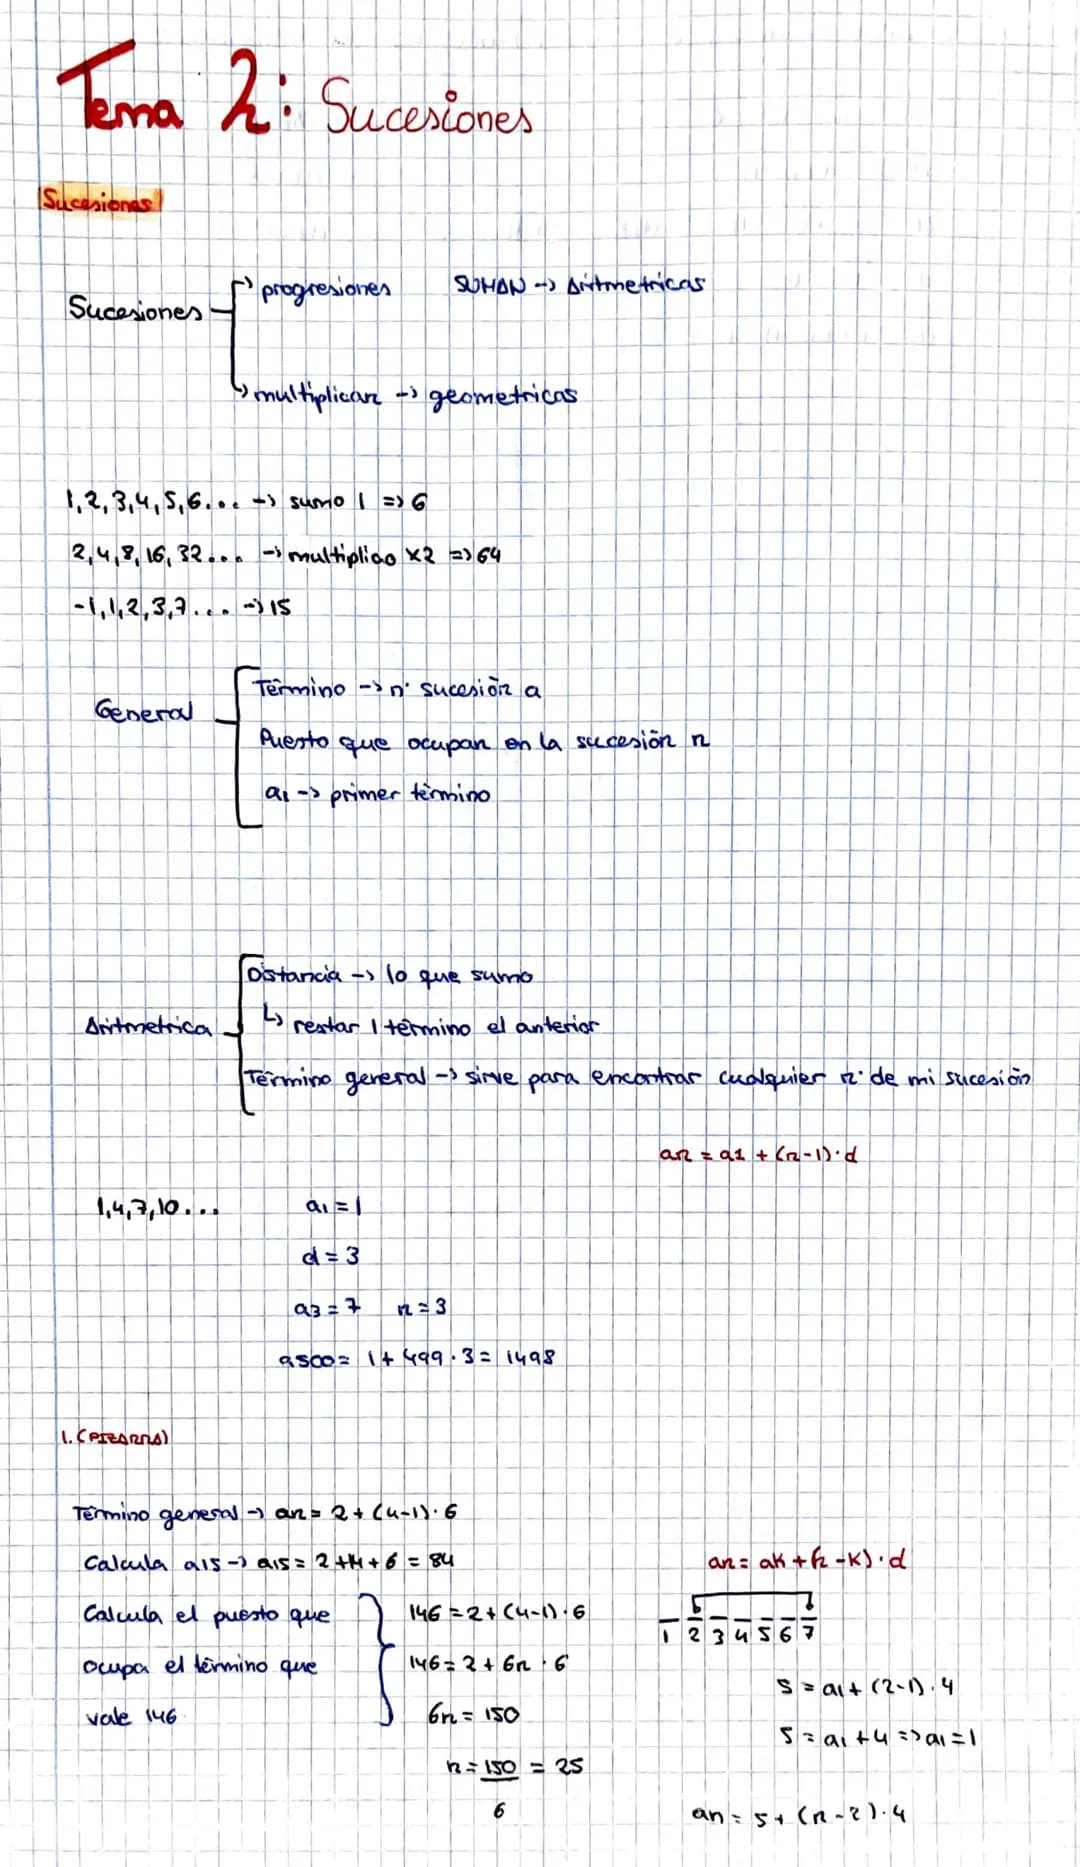 Tema 2: Sucesiones
Sucesiones
Sucesiones
progresiones SUMAN -> Aritmetricas
multiplicar -> geometricas
1,2,3,4,5,6... -> sumo 1 => 6
2,4,8,16,32... -> multiplico x2 => 64
-1,1,2,3,7... -> 15
General
Término -> nº sucesión a
Puesto que ocupan en la sucesión n
a1 -> primer término
Aritmetrica
Distancia -> lo que sumo
↳ restar 1 término el anterior
Término general -> sirve para encontrar cualquier nº de mi sucesión
an = a1 + (n-1)·d
1,4,7,10... a1 = 1
d = 3
a3 = 7 n = 3
a500 = 1 + 499·3 = 1498
1. (PIZARRA)
Término general -> an = 2 + (4-1)·6
Calcula a15 -> a15 = 2 + 14 + 6 = 84
Calcula el puesto que
ocupa el término que
vale 146
146 = 2 + (4-1)·6
146 = 2 + 6n · 6
6n = 150
n = 150 = 25
6
an = ak + (n-k)·d
1 2 3 4 5 6 7
5 = a1 + (2-1)·4
5 = a1 + 4 => a1 = 1
an = 5 + (n-2)·4